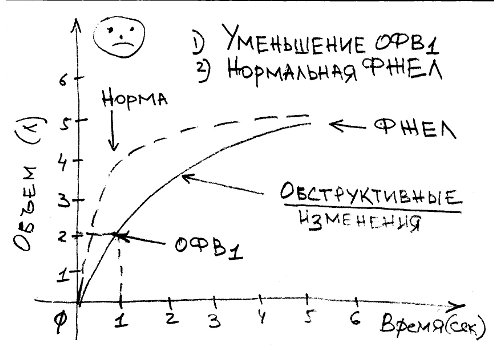 1) УМЕНЬШЕНИЕ ОФВ1
2) НОРМАЛЬНАЯ ФЖЕЛ
НОРМА
ФЖЕЛ
ОБСТРУКТИВНЫЕ
ИЗМЕНЕНИЯ
ОФВ1
ОБЪЕМ (Л)
6
5
4
3
2
1
0 1 2 3 4 5 6 Время(сек)